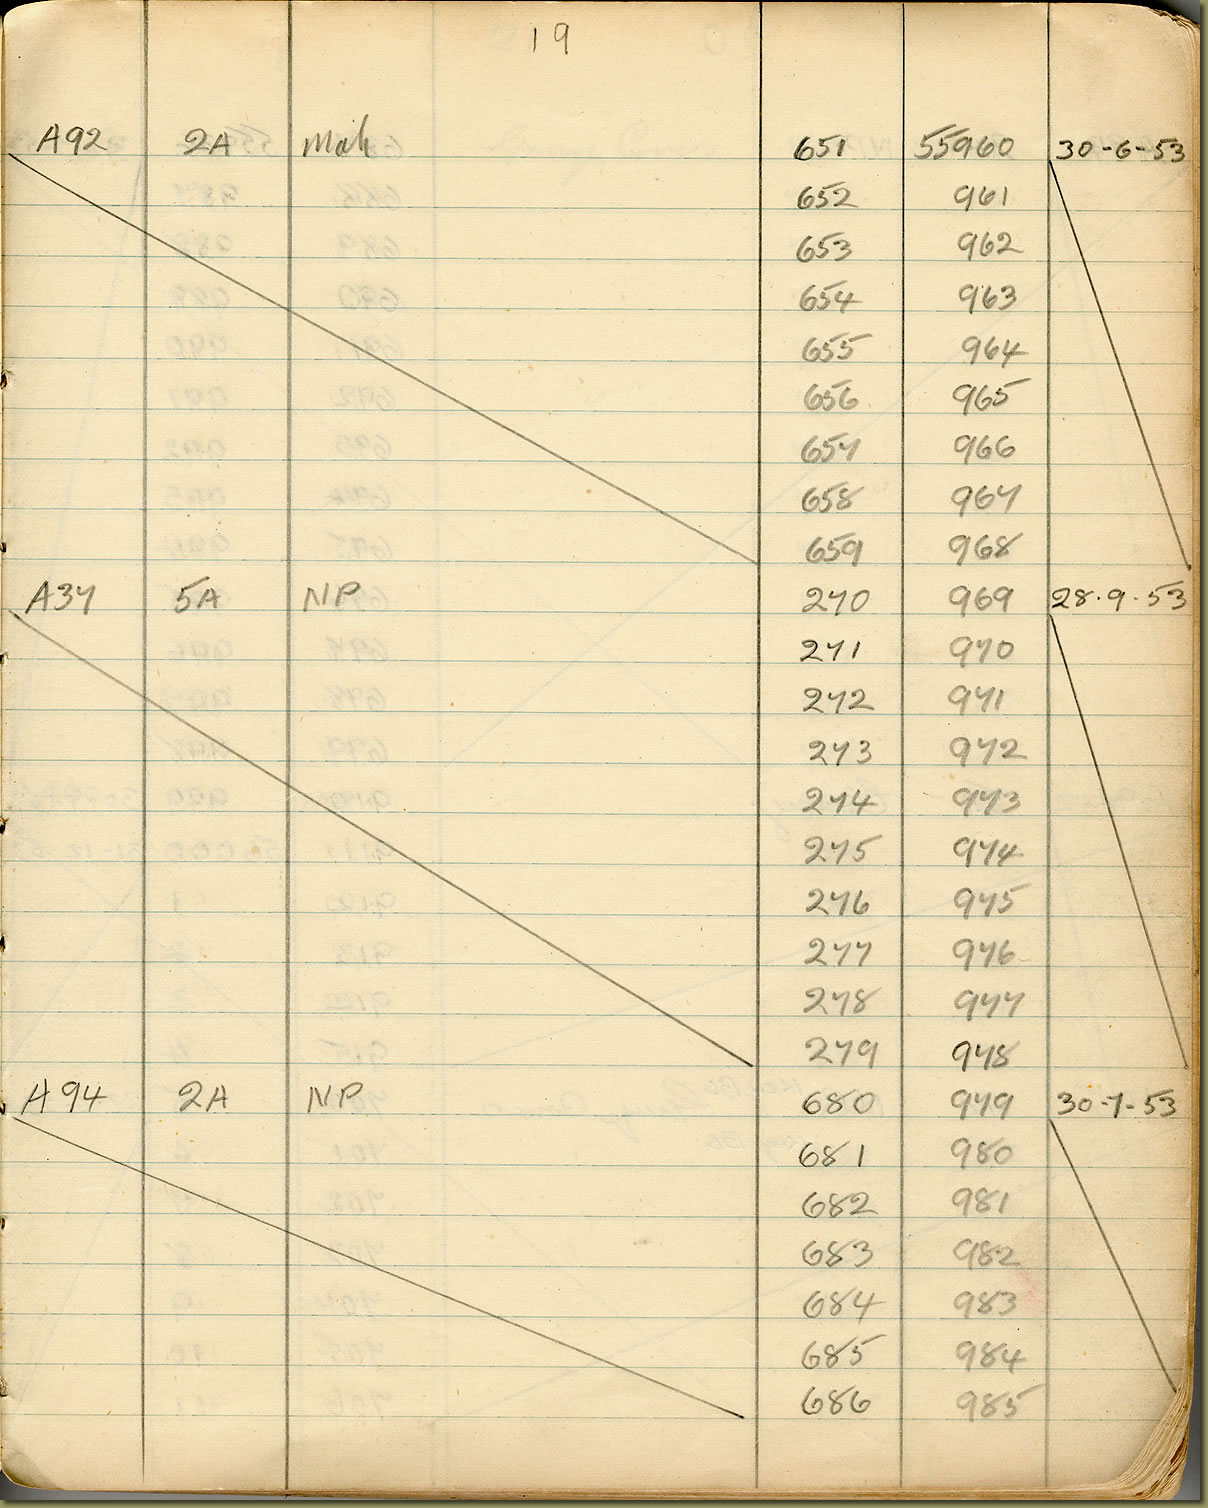 19
A92 2A Mah 651 55960 30-6-53
652 961
653 962
654 963
655 964
656 965
657 966
658 967
659 968
A37 5A NP 270 969 28.9.53
271 970
272 971
273 972
274 973
275 974
276 975
277 976
278 977
279 978
A94 2A NP 680 979 30-7-53
681 980
682 981
683 982
684 983
685 984
686 985